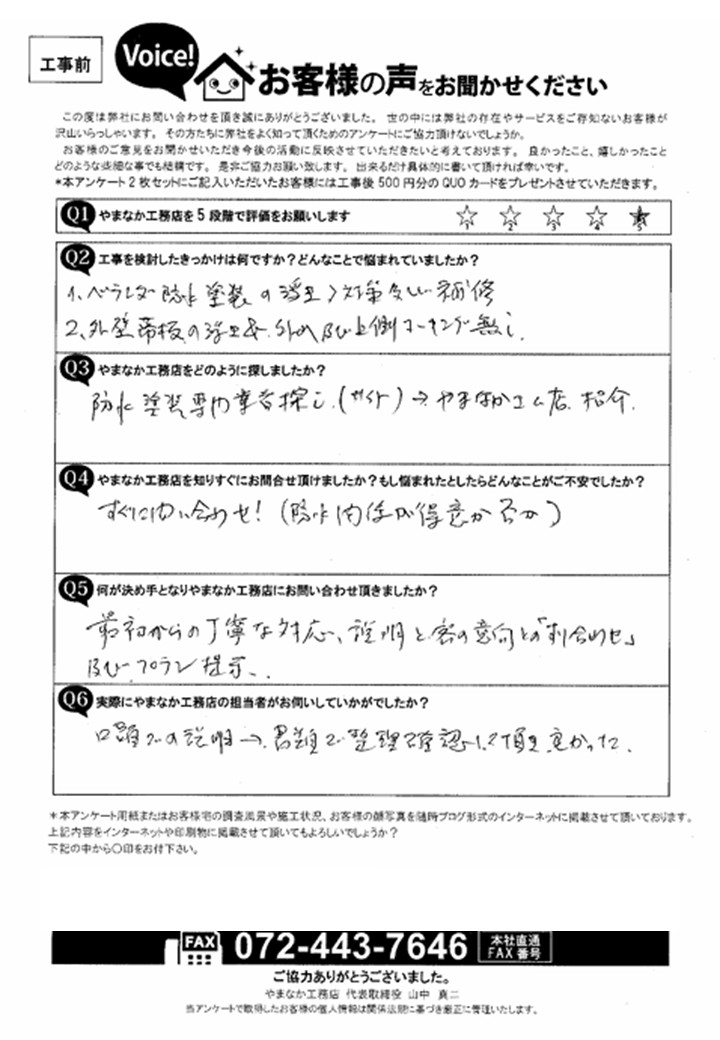 工事前
Voice!
お客様の声をお聞かせください
この度は弊社にお問い合わせを頂き誠にありがとうございました。 世の中には弊社の存在やサービスをご存知ないお客様が
沢山いらっしゃいます。 その方たちに弊社をよく知って頂くためのアンケートにご協力頂けないでしょうか。
お客様のご意見をお聞かせいただき今後の活動に反映させていただきたいと考えております。 良かったこと、嬉しかったこと
どのような些細な事でも結構です。 是非ご協力お願い致します。 出来るだけ具体的に書いて頂ければ幸いです。
*本アンケート2枚セットにご記入いただいたお客様には工事後500円分のQUOカードをプレゼントさせていただきます。
Q1 やまなか工務店を5段階で評価をお願いします
☆1 ☆2 ☆3 ☆4 ★5
Q2 工事を検討したきっかけは何ですか?どんなことで悩まれていましたか?
1、ベランダ防水塗装の浮き 対策及び補修
2、外壁帯板の浮き&、外れ及び上側コーキング無し.
Q3 やまなか工務店をどのように探しましたか?
防水塗装専門業者探し.(サイト)→やまなか工ム店. 紹介.
Q4 やまなか工務店を知りすぐにお問合せ頂けましたか?もし悩まれたとしたらどんなことがご不安でしたか?
すぐに問い合わせ!(防水関係が得意か否か)
Q5 何が決め手となりやまなか工務店にお問い合わせ頂きましたか?
最初からの丁寧な対応、説明と客の意向との「刷合わせ」
及びプラン提示..
Q6 実際にやまなか工務店の担当者がお伺いしていかがでしたか?
口頭での説明→、書類で整理確認して頂き良かった.
*本アンケート用紙またはお客様宅の調査風景や施工状況、お客様の顔写真を随時ブログ形式のインターネットに掲載させて頂いております。
上記内容をインターネットや印刷物に掲載させて頂いてもよろしいでしょうか?
下記の中から○印をお付下さい。
FAX 072-443-7646 本社直通
FAX番号
ご協力ありがとうございました。
やまなか工務店 代表取締役 山中 真二
当アンケートで取得したお客様の個人情報は関係法則に基づき厳正に管理いたします。